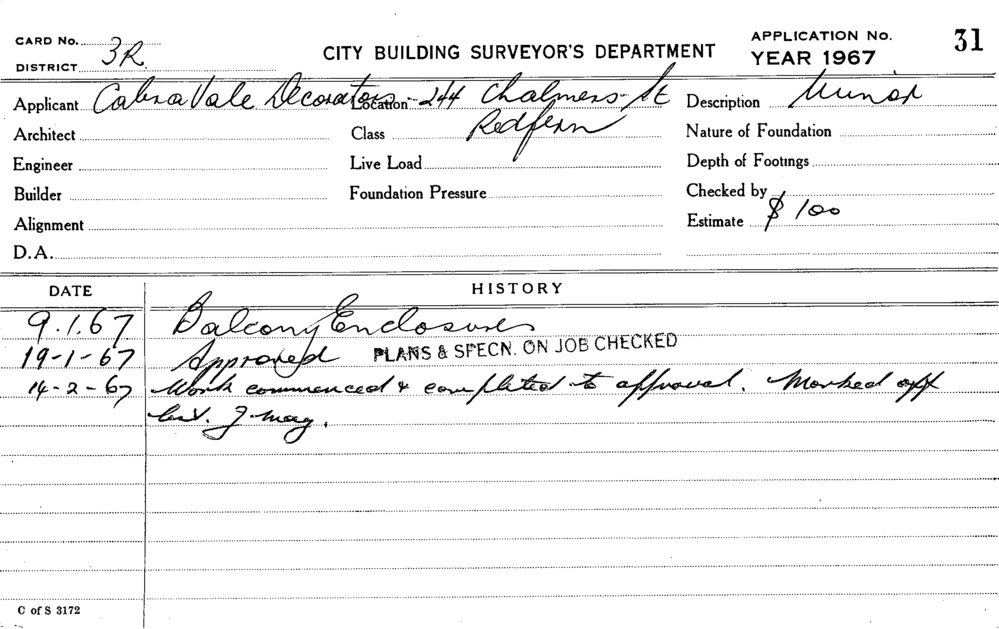 CARD No.
DISTRICT 3R.
CITY BUILDING SURVEYOR'S DEPARTMENT
APPLICATION No. 31
YEAR 1967
Applicant CabraVale Decorators Location 244 Chalmers St Description Minor
Architect Class Redfern Nature of Foundation
Engineer Live Load Depth of Footings
Builder Foundation Pressure Checked by
Alignment Estimate $100
D.A.
DATE HISTORY
9.1.67 Balcony Enclosure
19-1-67 Approved PLANS & SPECN. ON JOB CHECKED
14-2-67 Work commenced & completed to approval. Marked off
J. May.
C of S 3172